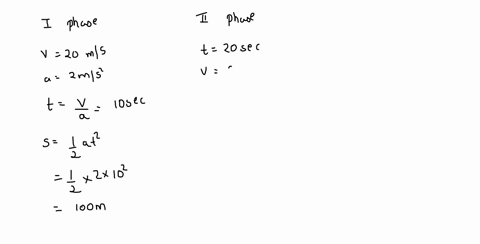 I phase
V = 20 m/s
a = 2m/s²
t = V/a = 10sec
s = 1/2 at²
= 1/2 × 2 × 10²
= 100m
II phase
t = 20sec
V =